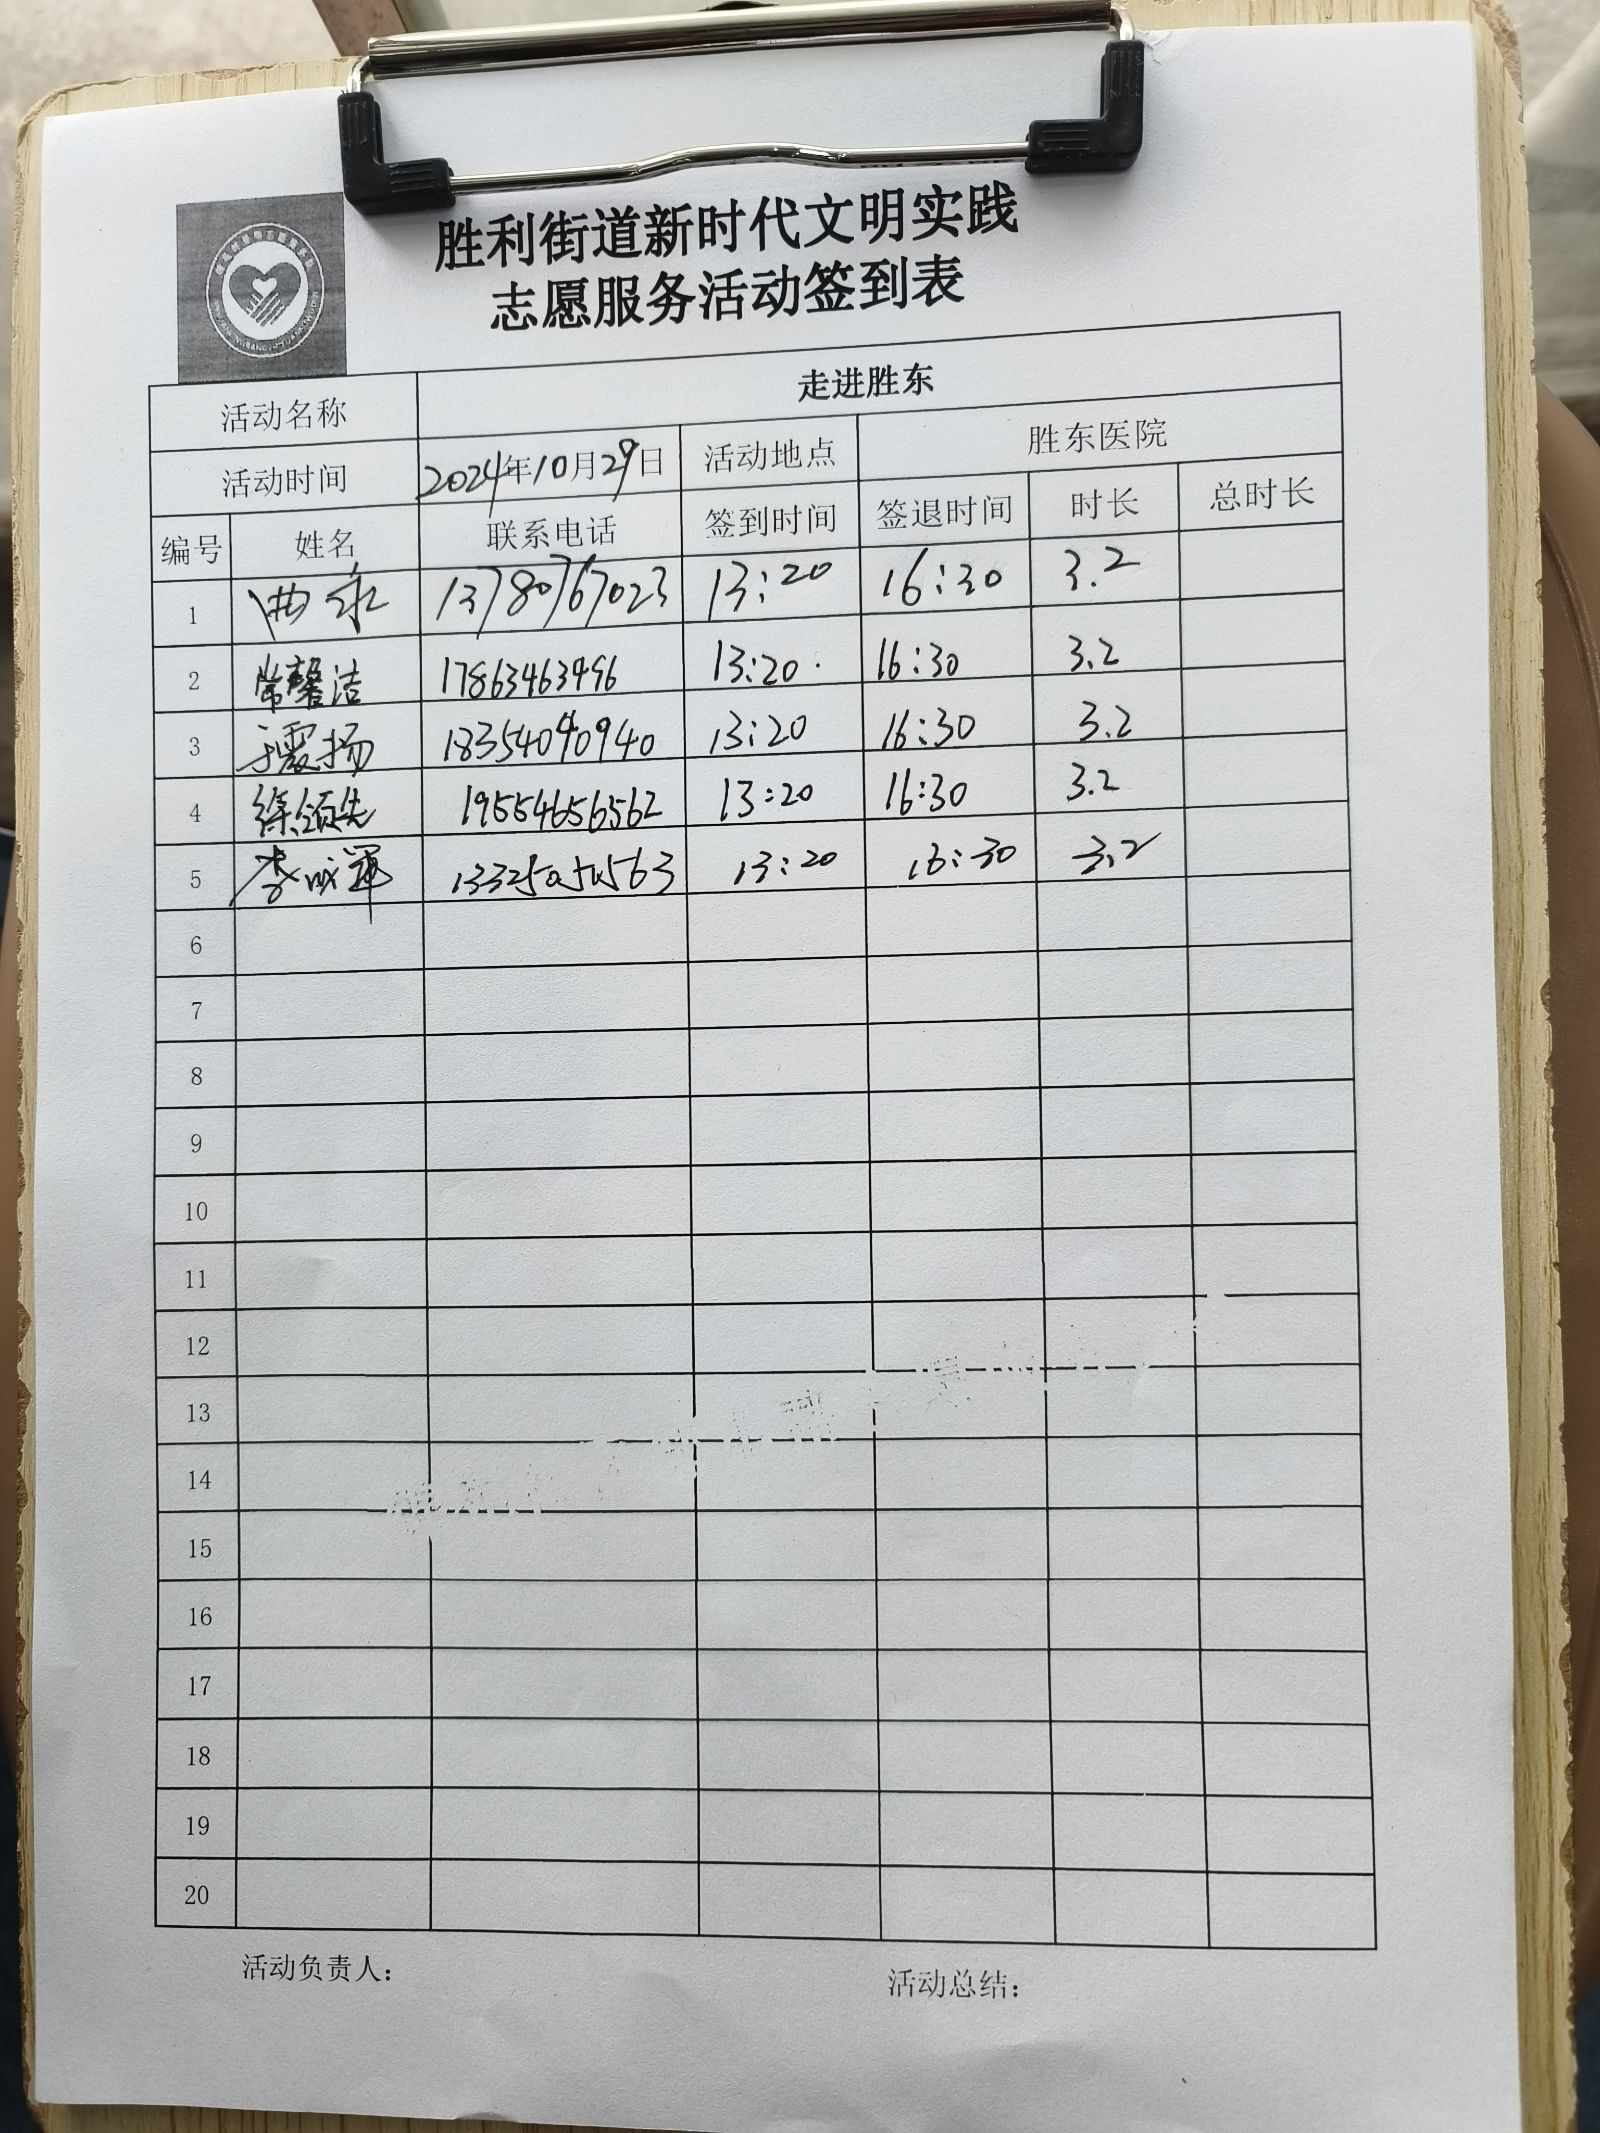 胜利街道新时代文明实践
志愿服务活动签到表
活动名称 走进胜东
活动时间 2024年10月29日 活动地点 胜东医院
编号 姓名 联系电话 签到时间 签退时间 时长 总时长
1 曲永 13780767023 13:20 16:30 3.2
2 常馨洁 17863463496 13:20 16:30 3.2
3 于震扬 18354090940 13:20 16:30 3.2
4 徐领先 19554656562 13:20 16:30 3.2
5 李成军 13:20 16:30 3.2
6
7
8
9
10
11
12
13
14
15
16
17
18
19
20
活动负责人： 活动总结：